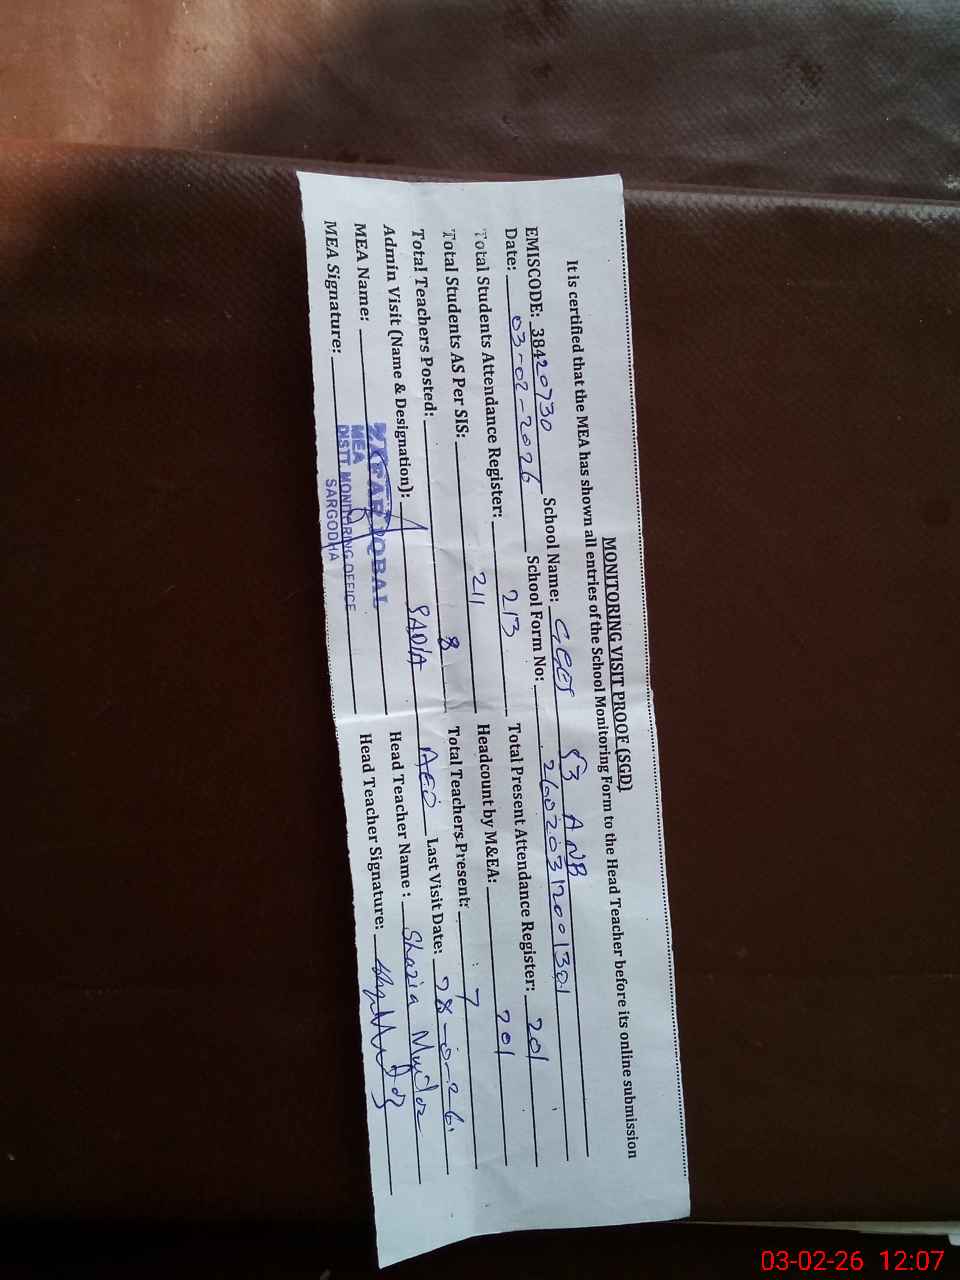 MONITORING VISIT PROOF (SGD)
It is certified that the MEA has shown all entries of the School Monitoring Form to the Head Teacher before its online submission
EMISCODE: 38420730 School Name: GGES 53 ANB
Date: 03-02-2026 School Form No: 26020312001301
Total Students Attendance Register: 213 Total Present Attendance Register: 201
Total Students AS Per SIS: 211 Headcount by M&EA: 201
Total Teachers Posted: 8 Total Teachers Present: 7
Admin Visit (Name & Designation): SADIA AEO Last Visit Date:
MEA Name: ZAFAR IQBAL Head Teacher Name : Shazia
MEA Signature: Head Teacher Signature:
MEA
DISTT. MONITORING OFFICE
SARGODHA
03-02-26 12:07